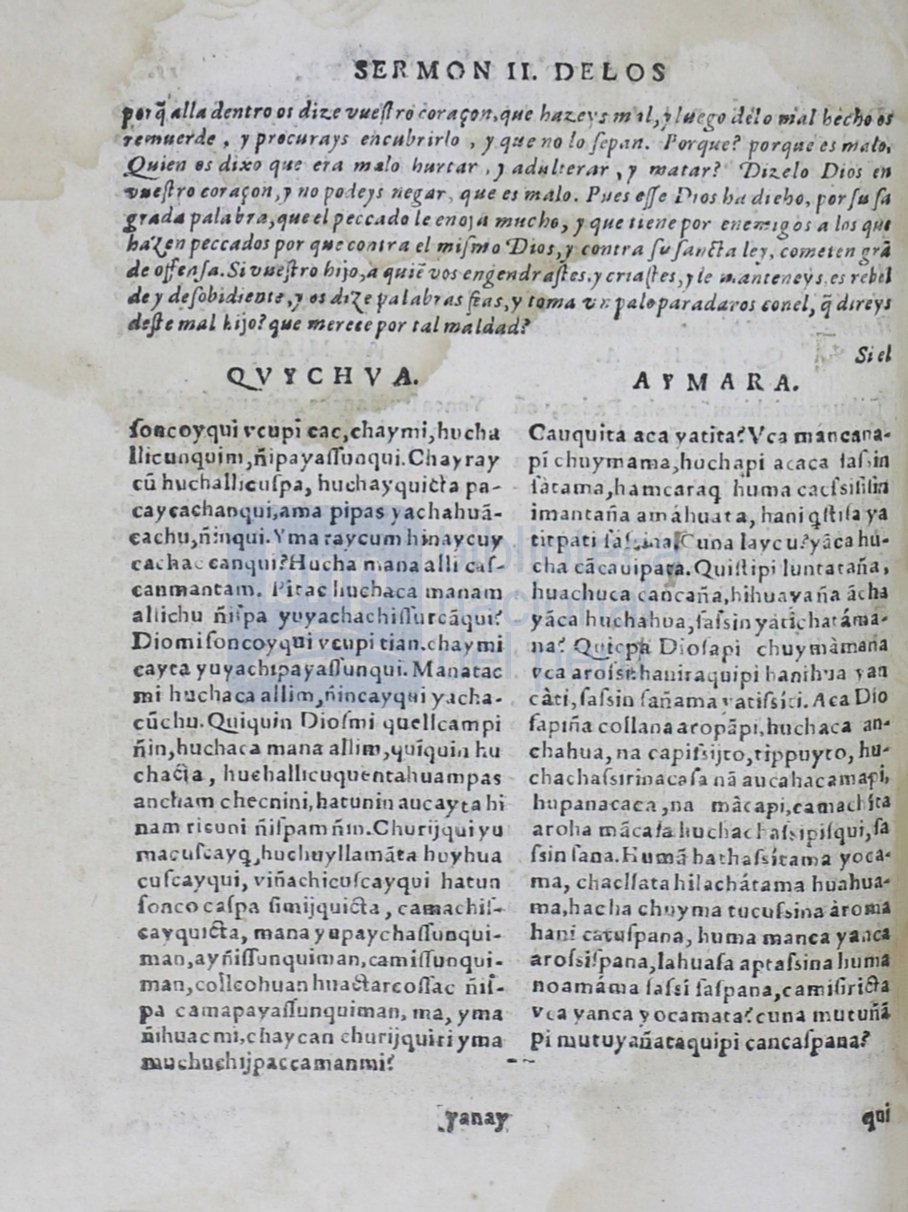 SERMON II. DELOS
porq̃ alla dentro os dize vueſtro coraçon, que hazeys mal, y luego delo mal hecho os
remuerde , y procurays encubrirlo , y que no lo ſepan. Porque? porque es malo.
Quien os dixo que era malo hurtar , y adulterar , y matar? Dizelo Dios en
vueſtro coraçon, y no podeys negar, que es malo. Pues eſſe Dios ha dicho, por ſu ſa
grada palabra, que el peccado le enoja mucho, y que tiene por enemigos a los que
hazen peccados por que contra el miſmo Dios, y contra ſu ſancta ley, cometen grã
de offenſa. Si vueſtro hijo, a quiẽ vos engendraſtes, y criaſtes, y le manteneys es rebel
de y deſobidiente, y os dize palabras feas, y toma vn palo paradaros conel, q̃ direys
deſte mal hijo? que merece por tal maldad?
Si el
QVYCHVA.
ſoncoyqui vcupi cac, chaymi, hucha
llicunquim, ñipayaſſunqui. Chayray
cũ huchallicuſpa, huchayquicta pa-
caycachanqui, ama pipas yachahuã-
cachu, ñinqui. Yma raycum hinaycuy
cachac canqui? Hucha mana alli caſ-
canmantam. Pitac huchaca manam
allichu ñiſpa yuyachachiſſurcãqui?
Diomi ſoncoyqui vcupi tian. chaymi
cayta yuyachipayaſſunqui. Manatac
mi huchaca allim, ñincayqui yacha-
cũchu. Quiquin Dioſmi quellcampi
ñin, huchaca mana allim, quiquin hu
chacta, huchallicuquentahuampas
ancham checnini, hatunin aucayta hi
nam ricuni ñiſpam ñin. Churijqui yu
macuſcayq, huchuyllamãta huyhua
cuſcayqui, viñachicuſcayqui hatun
ſonco caſpa ſimijquicta, camachiſ-
cayquicta, mana yupaychaſſunqui-
man, ayñiſſunquiman, camiſſunqui-
man, collcohuan huactarcoſſac ñiſ-
pa camapayaſſunquiman, ma, yma
ñihuacmi, chaycan churijquiri yma
muchuchijpac camanmi?
AYMARA.
Cauquita aca yatita? Vca mancana-
pi chuymama, huchapi acaca ſaſsin
ſàtama, hamcaraq huma cacſsiſiſin
imantaña amáhuata, hani qſtiſa ya
titpati ſaſsina. Cuna laycu? yãca hu-
cha cãcauipata. Quiſtipi luntataña,
huachuca cancaña, hihuayaña ãcha
yãca huchahua, ſaſsin yatichatáma-
na? Quicpa Dioſapi chuymàmana
vca aroſsi haniraquipi hanihua yan
câti, ſaſsin ſañama yatiſsiti. Aca Dio
ſapiña collana aropãpi, huchaca an-
chahua, na capiſsijto, tippuyto, hu-
chachaſsirinacaſa nã aucahacamapi,
hupanacaca, na mãcapi, camachita
aroha mãcaſa huchachaſsipiſqui, ſa
ſsin ſana. Humã hathaſsitama yoca-
ma, chacllata hilachátama huahua-
ma, hacha chuyma tucuſsina àroma
hani catuſpana, huma manca yanca
aroſsiſpana, lahuaſa aptaſsina huma
noamáma ſaſsi ſaſpana, camiſiricta
vca yanca yocamata? cuna mutuñã
pi mutuyañataquipi cancaſpana?
yanay
qui